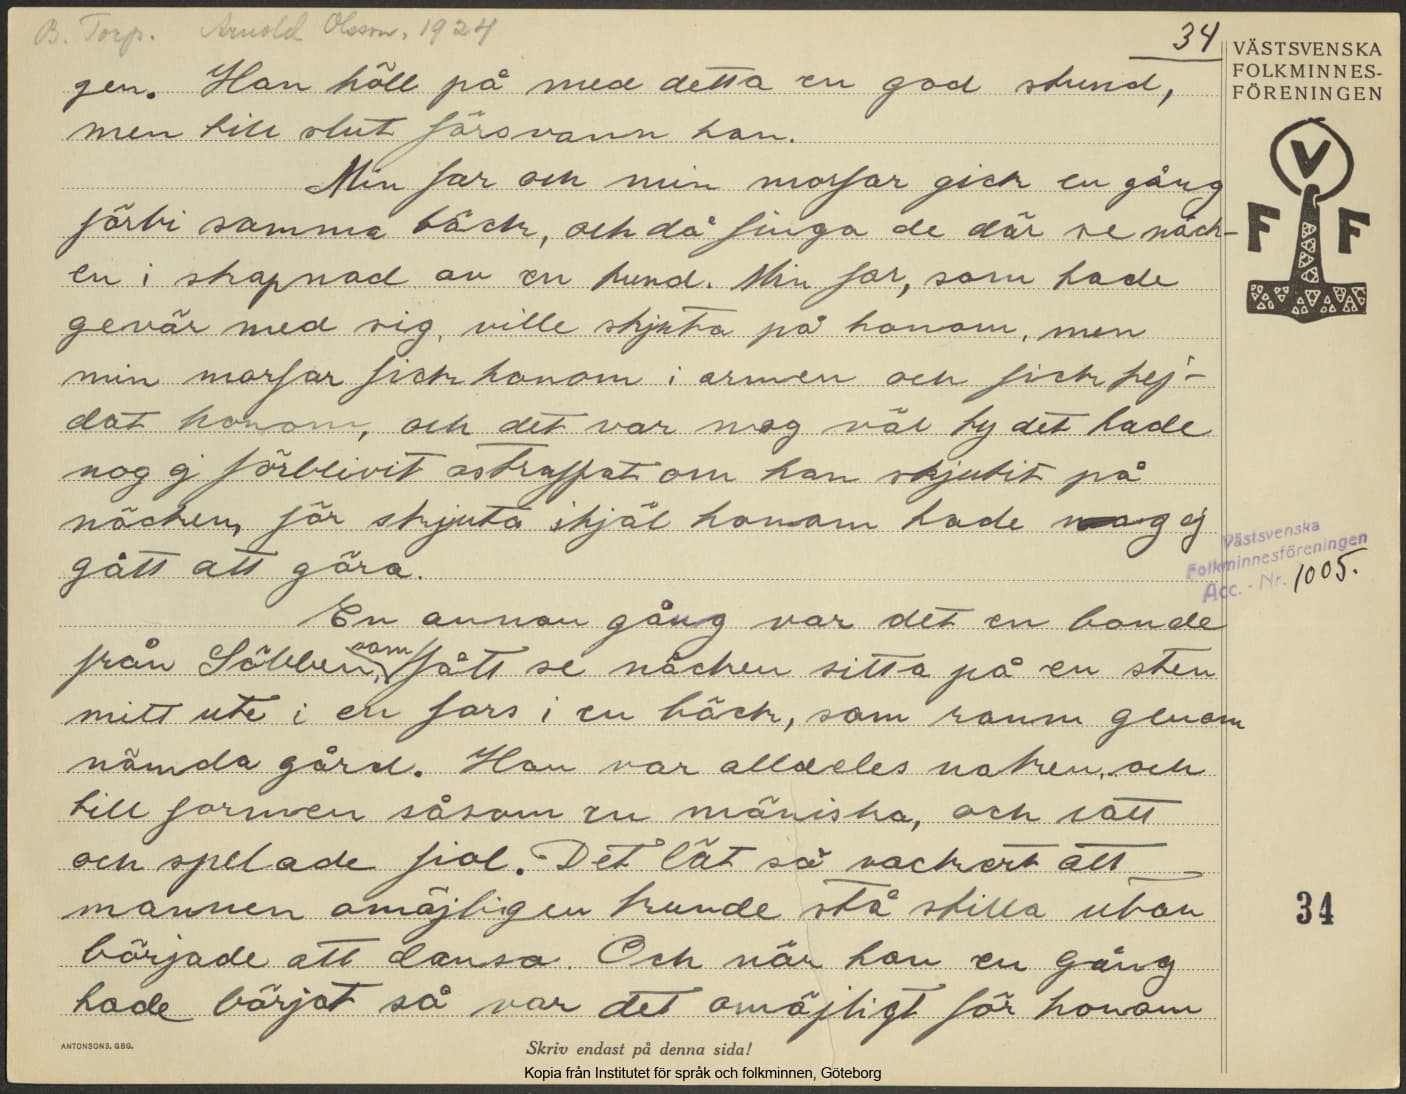 B. Torp. Arnold Olsson, 1924
34
VÄSTSVENSKA
FOLKMINNES-
FÖRENINGEN
V
F F
gen. Han höll på med detta en god stund,
men till slut försvann han.
Min far och min morfar gick en gång
förbi samma bäck, och då finga de där se näck-
en i skapnad av en hund. Min far, som hade
gevär med sig, ville skjuta på honom, men
min morfar fick honom i armen och fick hej-
dat honom, och det var nog väl ty det hade
nog ej förblivit ostraffat om han skjutit på
näcken, för skjuta ihjäl honom hade nog ej
gått att göra.
En annan gång var det en bonde
från Säbben, som fått se näcken sitta på en sten
mitt ute i en fors i en bäck, som rann genom
nämda gård. Han var alldeles naken, och
till formen såsom en mäniska, och satt
och spelade fiol. Det lät så vackert att
mannen omöjligen kunde stå stilla utan
började att dansa. Och när han en gång
hade börjat så var det omöjligt för honom
Västsvenska
Folkminnesföreningen
Acc. - Nr. 1005.
34
ANTONSONS, GBG.
Skriv endast på denna sida!
Kopia från Institutet för språk och folkminnen, Göteborg